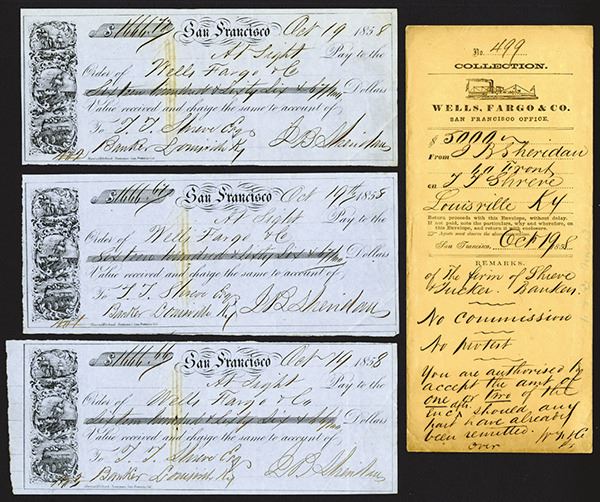 $1666.70 San Francisco Oct 19 1858
At Sight Pay to the
Order of Wells Fargo & C
Sixteen hundred & Sixty Six & 67/100 Dollars
Value received and charge the same to account of
To T. T. Shreve Esq
Banker Louisville Ky J B Sheridan
$1666.67 San Francisco Oct 19th 1858
At Sight Pay to the
Order of Wells Fargo & Co
Sixteen hundred & Sixty Six & 67/100 Dollars
Value received and charge the same to account of
To T. T. Shreve Esq
Banker Louisville Ky J B Sheridan
$1666.66 San Francisco Oct 19 1858
At Sight Pay to the
Order of Wells Fargo & Co
Sixteen hundred & Sixty Six Dollars
Value received and charge the same to account of
To T. T. Shreve Esq
Banker Louisville Ky J B Sheridan
No. 499
COLLECTION.
WELLS, FARGO & CO.
SAN FRANCISCO OFFICE.
$ 5000
From J B Sheridan
on T T Shreve
Louisville Ky
Return proceeds with this Envelope, without delay.
If not paid, note the particulars, why and wherefore, on
this Envelope, and return it with enclosure.
San Francisco, Oct 19 1858
REMARKS.
of The firm of Shreve
& Tucker. Bankers.
No commission
No protest
You are authorised to
accept the amt of
one or two of the
dfts. incd should any
part have already
been remitted.
over W F & Co